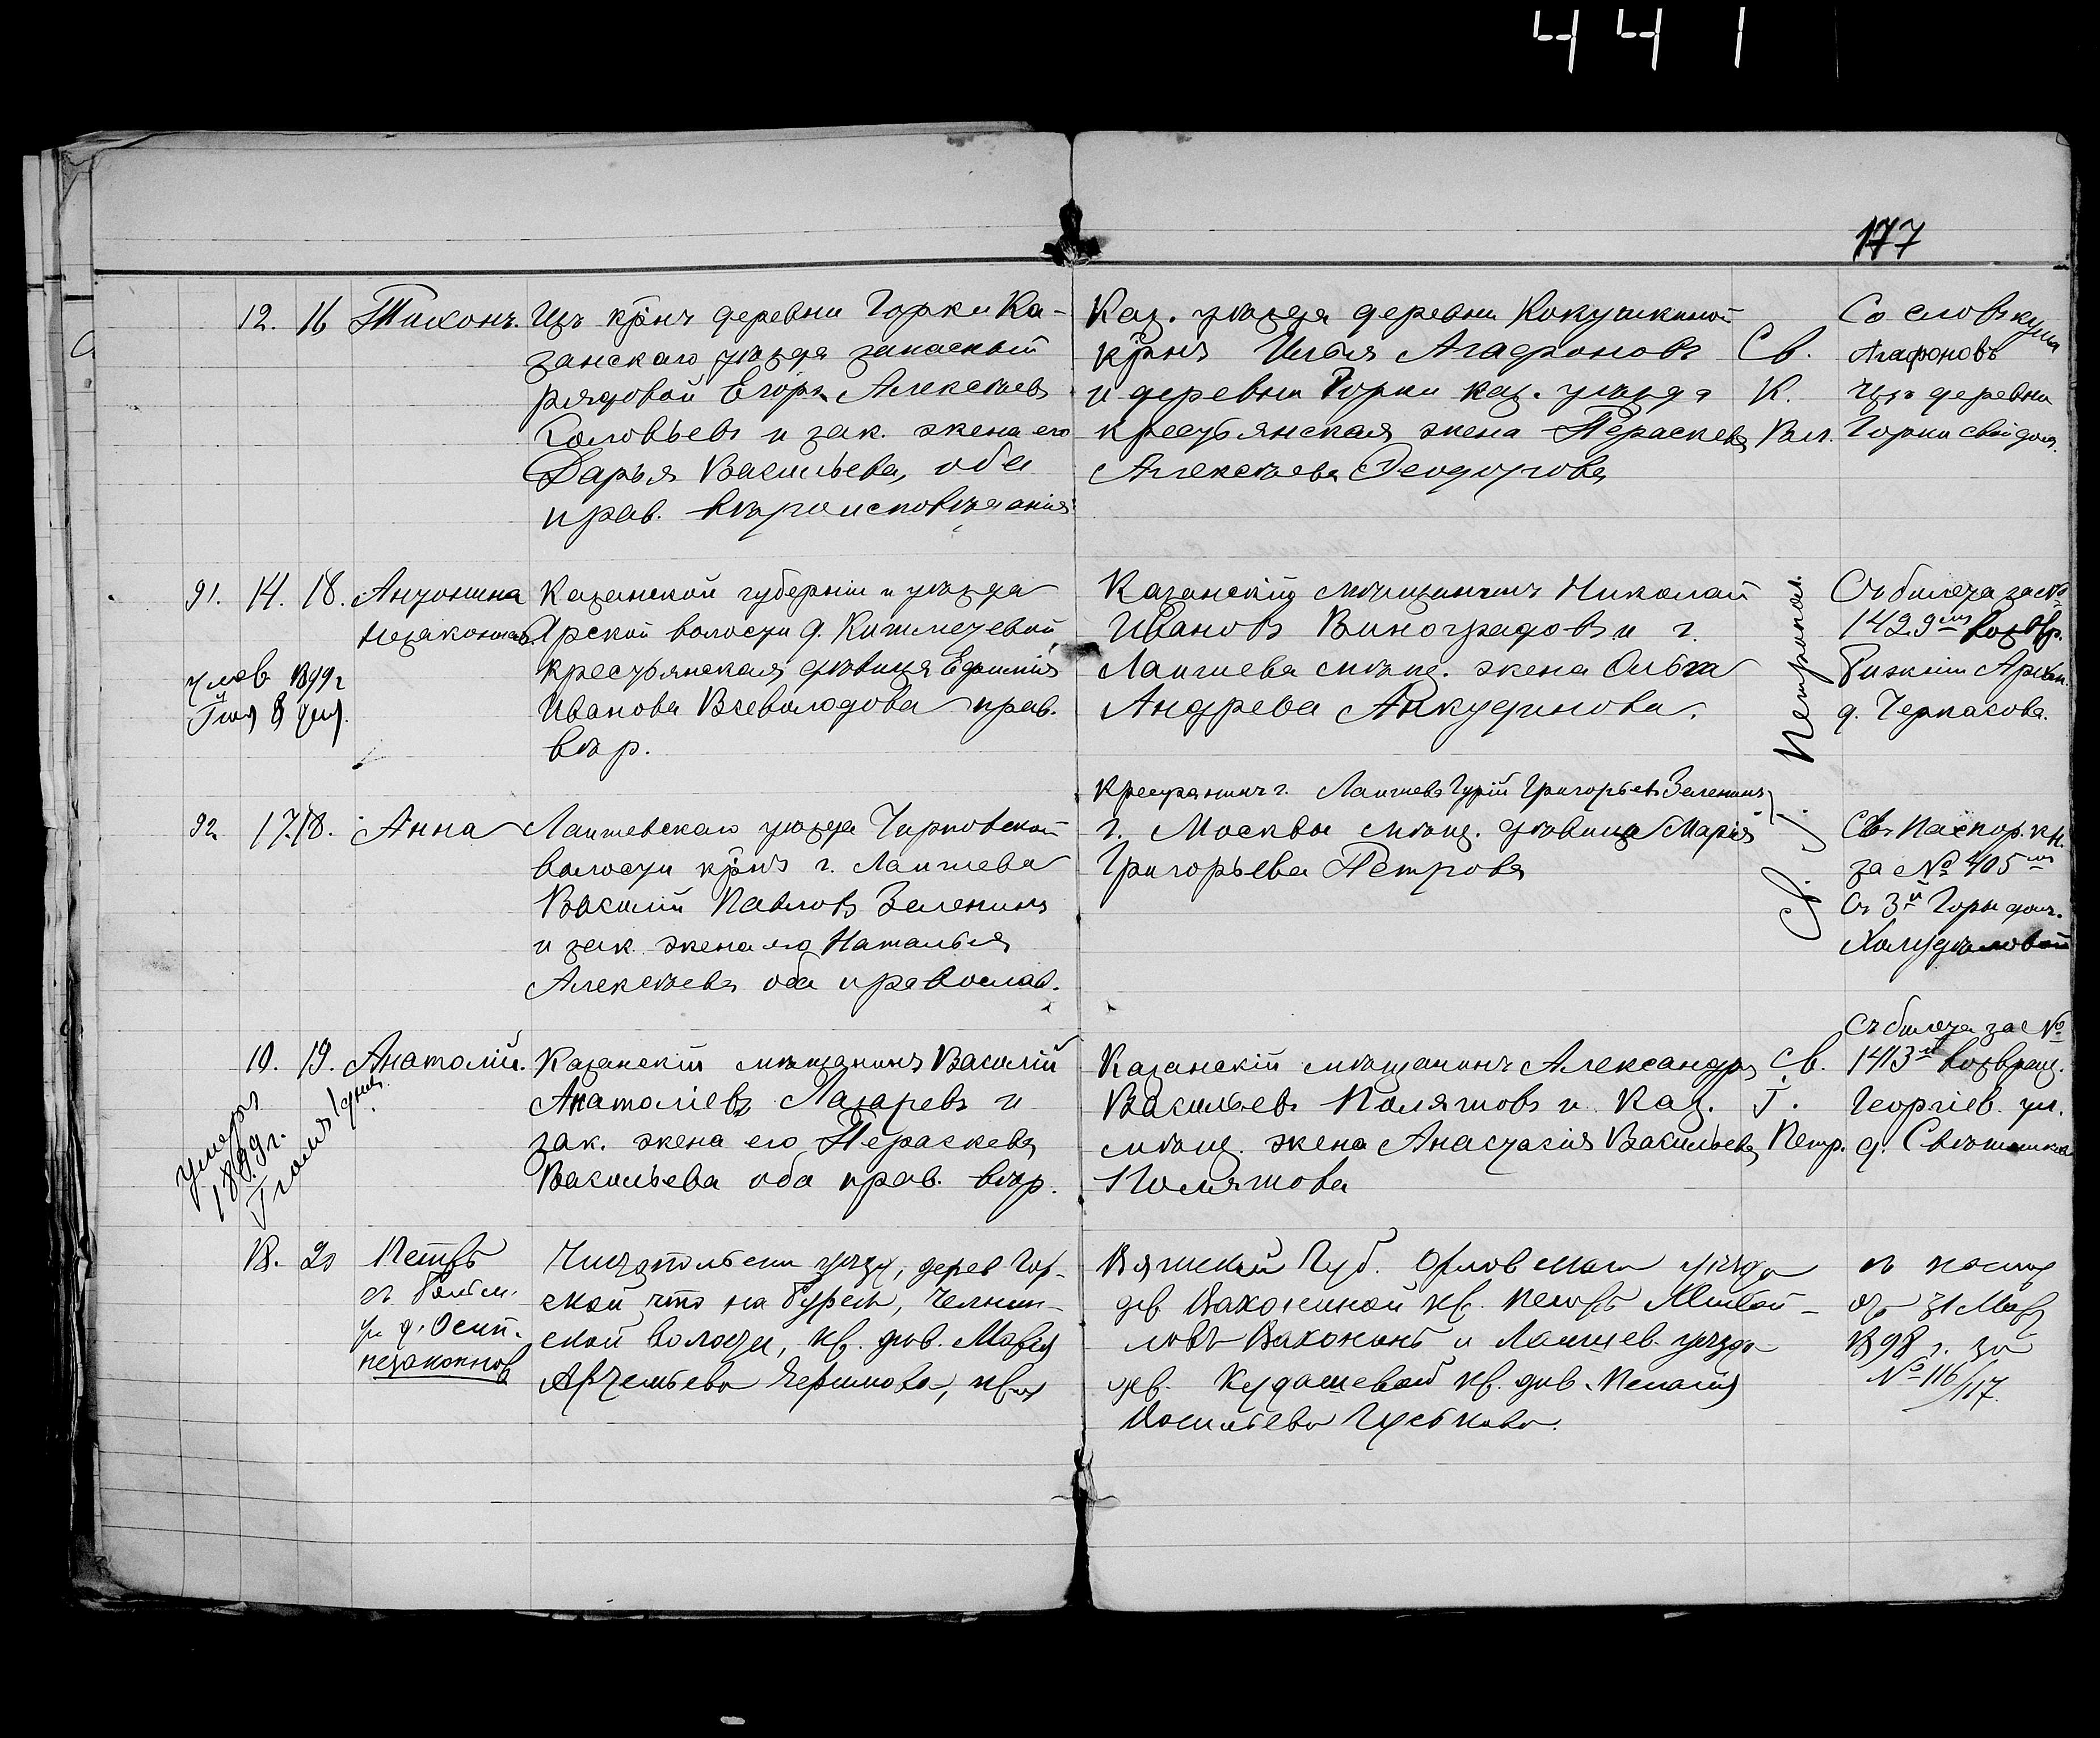 441
177
12. 16 Тихонъ. Изъ крѣнъ деревни Горки Ка-
занскаго уѣзда запасный
рядовой Егоръ Алексѣевъ
Соловьевъ и зак. жена его
Дарья Васильева, оба
прав. вѣроисповѣданія
Каз. уѣзда деревни Кокушкиной
крнъ Илья Агафоновъ
и деревни Горки каз. уѣзда
крестьянская жена Параскева
Алексѣева Ѳеодорова
Св.
К.
Со словъ кума
Агафоновъ
Изъ деревни
Горки свой домъ.
91. 14. 18. Антонина
незаконная
умер 1899 г
Іюля 8 дня.
Казанской губерніи и уѣзда
Арской волости д. Кишметевой
крестьянская дѣвица Евфимія
Иванова Всеволодова прав.
вѣр.
Казанскій мѣщанинъ Николай
Ивановъ Виноградовъ и г.
Лаишева мѣщ. жена Ольга
Андреева Анкудинова.
Съ билета за №
1429мъ возвр.
Архан.
д. Черкасова.
92 17. 18. Анна
Лаишевскаго уѣзда Чирповской
волости крнъ г. Лаишева
Василій Павловъ Зеленинъ
и зак. жена его Наталья
Алексѣева оба православ.
Крестьянинъ г. Лаишева Гурій Григорьевъ Зеленинъ
г. Москвы мѣщ. дѣвица Марія
Григорьева Петрова
С. І. Петропал.
Съ Паспор. кн.
за № 405мъ
Съ 3й Горы дом.
10. 19. Анатолій.
умеръ
1899 г.
Іюля 1 дня.
Казанскій мѣщанинъ Василій
Анатоліевъ Лазаревъ и
зак. жена его Параскева
Васильева оба прав. вѣр.
Казанскій мѣщанинъ Александръ
Васильевъ Полятовъ и Каз.
мѣщ. жена Анастасія Васильева
Полятова
Св.
І.
Петр.
Съ билета за №
1413м возвращ.
Георгіев. ул.
д.
18. 20 Петръ
съ Больш.
ул. д. Осип.
незаконнор
Чистопольскаго уѣзду, дерев Гор-
ской что на Бурецѣ, Челнин-
ской волости, кр. дѣв. Марія
Артемьева Ефимова, пр.
Вятской Губ. Орловскаго уѣзда
дер. Вахониной кр. Петръ Михай-
ловъ Вахонинъ и Лаишев. уѣзда
дер. Кудашевой кр. дѣв. Пелагія
Васильева Гуськова.
съ паспор
отъ 31 Мар
1898 г. за
№ 116/117.